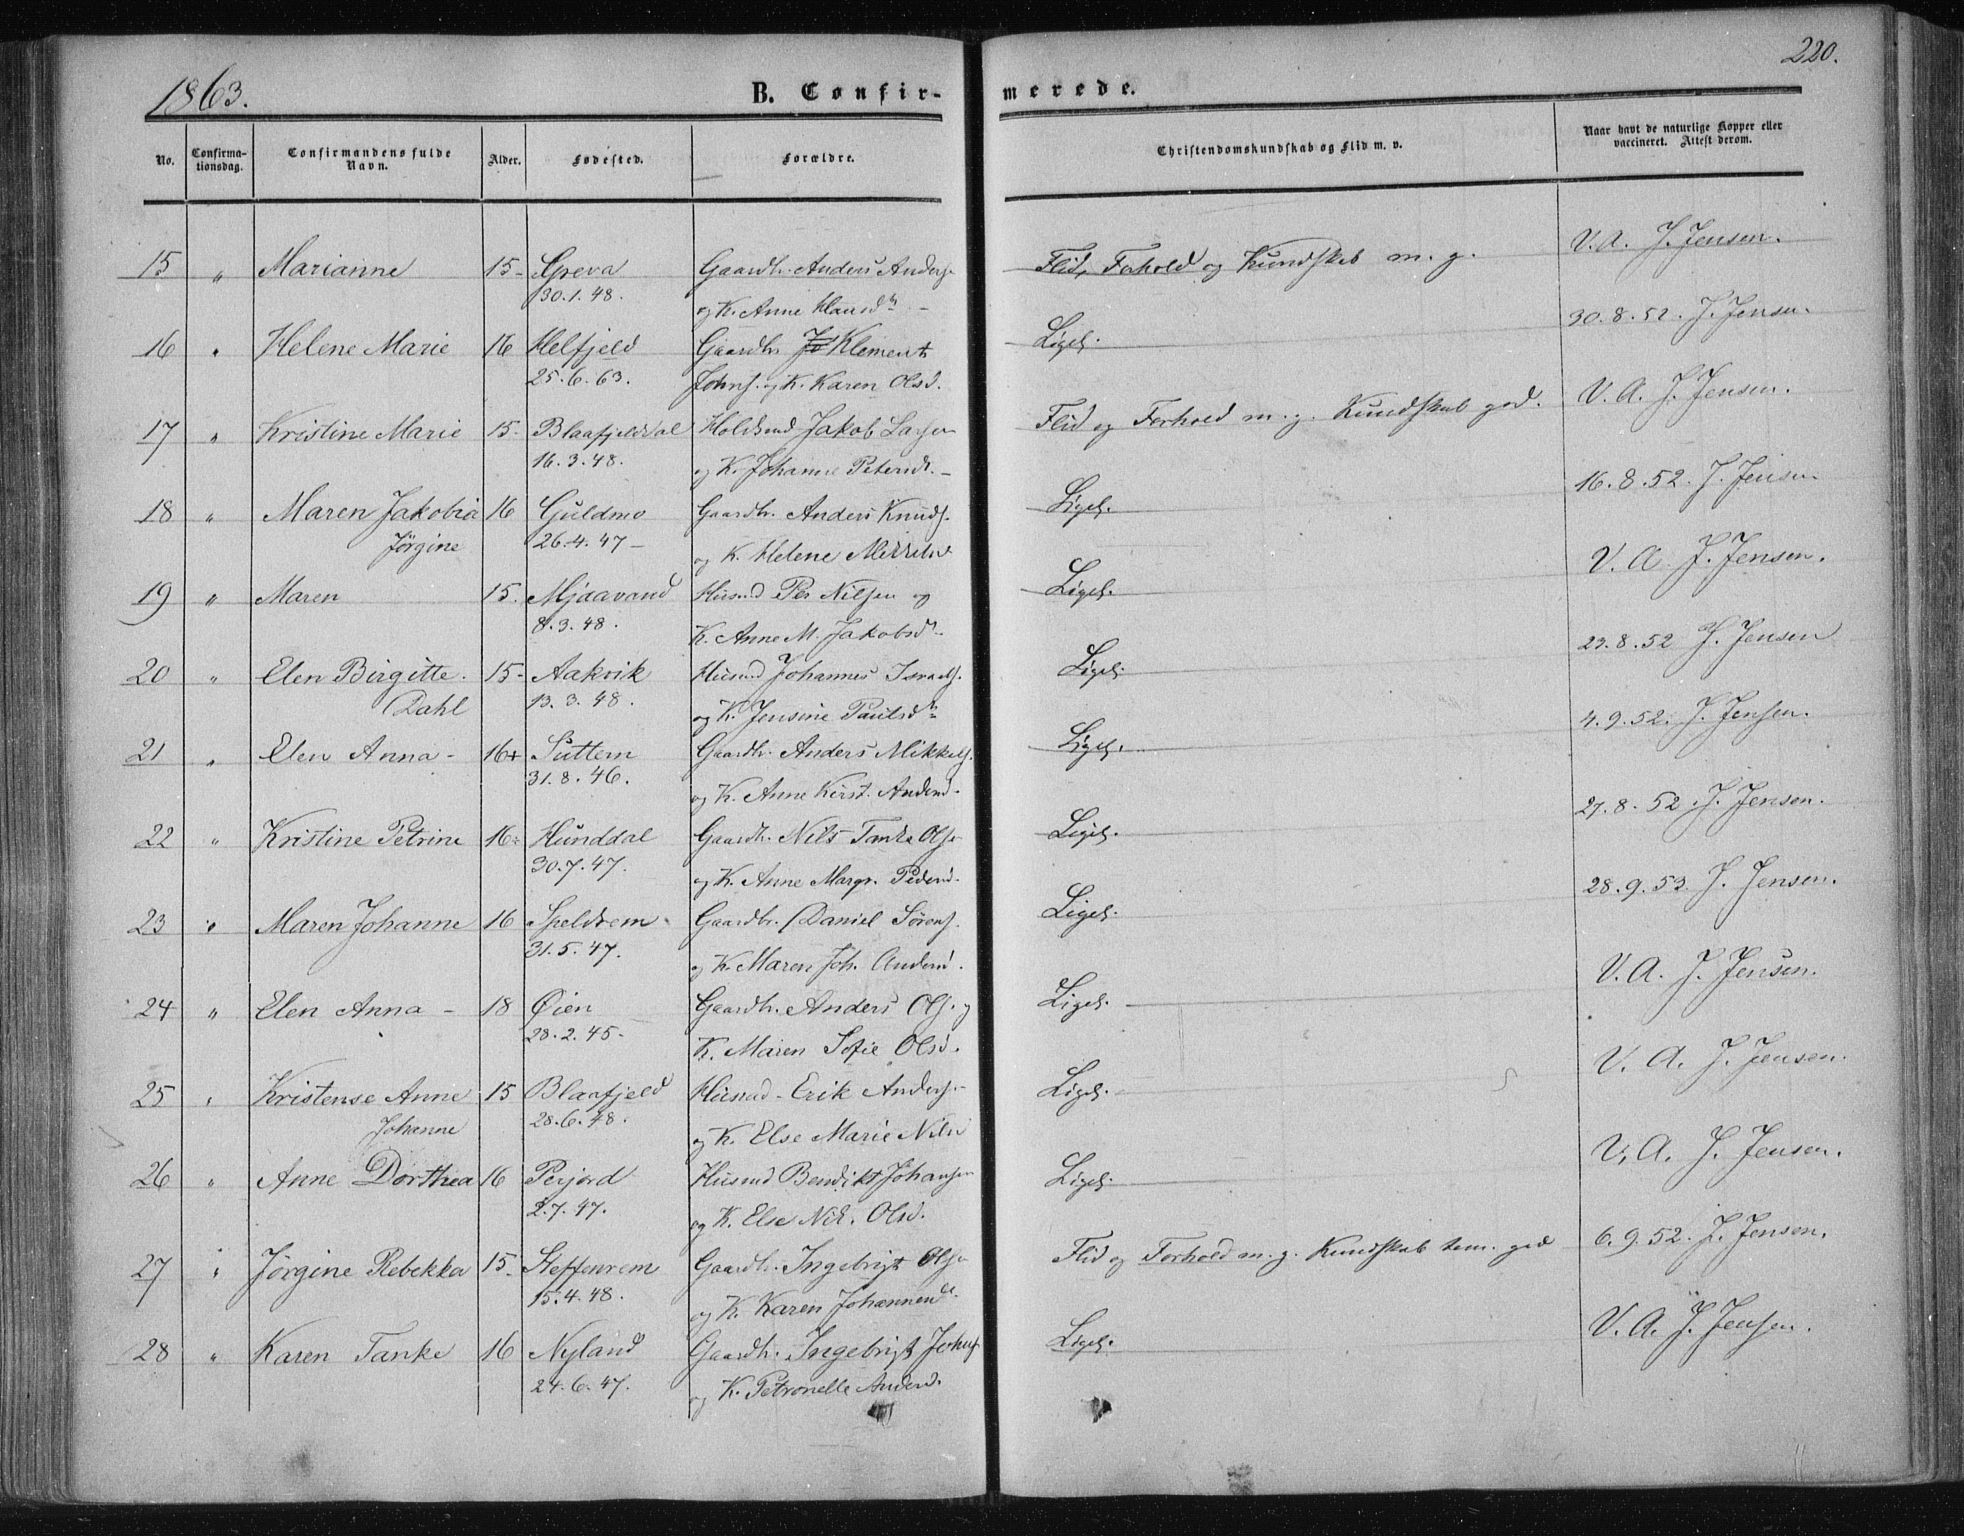 1863.
B. Confir-
merede.
220.
No.
Confirma-
tionsdag.
Confirmandens fulde
Navn.
Alder.
Fødested.
Forældre.
Christendomskundskab og Flid m. v.
Naar havt de naturlige Kopper eller
vaccineret. Attest derom.
15 " Marianne 15- Greva Gaardbr. Anders Anders. Flid, Forhold og Kundskab m. g. V. A. J. Jensen.
30.1.48. og K. Anne Hansdr
16 " Helene Marie 16 Helfjeld Gaardbr. Klement Ligel. 30.8.52. J. Jensen.
25.6.63. Johns. og K. Karen Olsd.
17 " Kristine Marie 15- Blaafjelddal Jakob Larsen Flid og Forhold m. g. Kundskab god. V. A. J. Jensen.
16.3.48. og K. Johanne Petersdr.
18 " Maren Jakobia 16 Guldmo Gaardbr. Anders Knuds. Ligel. 16.8.52. J. Jensen
Jørgine 26.4.47- og K. Helene Mikkelsd
19 " Maren 15. Mjaavand Husmd Per Nilsen og Ligel. V. A. J. Jensen.
8.3.48. K. Anne M. Jakobsdr
20 " Elen Birgitte 15- Aakvik Husmd Johannes Israels. Ligel. 23.8.52 J. Jensen
Dahl 13.3.48. og K. Jensine Paulsdr
21 " Elen Anna- 16+ Suttern Gaardbr. Anders Mikkels. Ligel. 4.9.52. J. Jensen.
31.8.46. og K. Anne Kirst. Andersd-
22 " Kristine Petrine 16- Hunddal Gaardbr. Nils Tanke Olsen Ligel. 27.8.52. J. Jensen.
30.7.47. og K. Anne Margr. Pedersd.
23 " Maren Johanne 16 Speldrem Gaardbr. Daniel Sørens. Ligel. 28.9.53. J. Jensen.
31.5.47. og K. Maren Joh. Andersd.
24 " Elen Anna- 18 Øien Gaardbr. Anders Ols. og Ligel. V. A. J. Jensen.
28.2.45- K. Maren Sofie Olsd.
25 " Kristense Anne 15 Blaafjeld Husmd- Erik Anders.- Ligel. V. A. J. Jensen.
Johanne 28.6.48. og K. Else Marie Nilsd
26 " Anne Dorthea 16 Perjord Husmd Bendikt Johansen Ligel. V. A. J. Jensen.
2.7.47. og K. Else Nik. Olsd.
27 " Jørgine Rebekka 15- Steffenrem Gaardbr. Ingebrigt Olsen Flid og Forhold m. g. Kundskab tem. god 6.9.52. J. Jensen.
15.4.48. og K. Karen Johannesd.
28 " Karen Tanke 16 Nyland Gaardbr. Ingebrigt Ligel. V. A. J. Jensen.
24.6.47. og K. Petronelle Andersd.